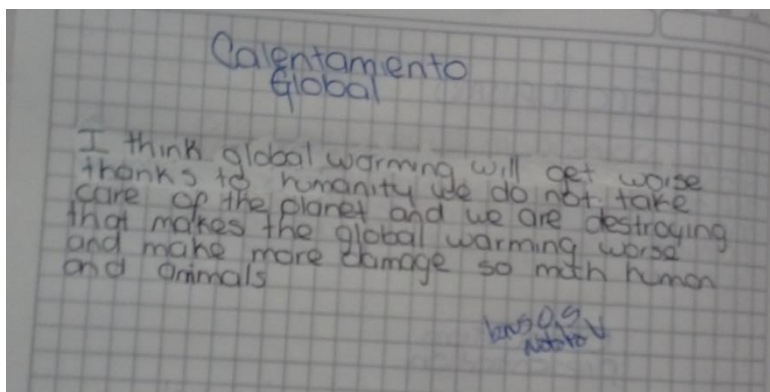 Calentamiento
Global
I think global warming will get worse
thanks to humanity we do not take
care of the planet and we are destroying
that makes the global warming worse
and make more damage so mith human
and animals